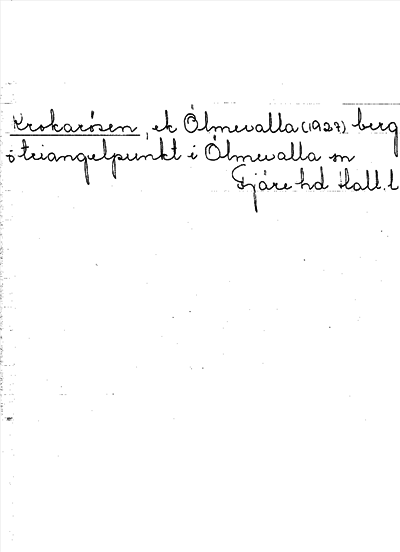 Krokarósen, ek Ólmevalla (1927) berg
o triangelpunkt i Ólmevalla sn
Fjäre hd Hall. l